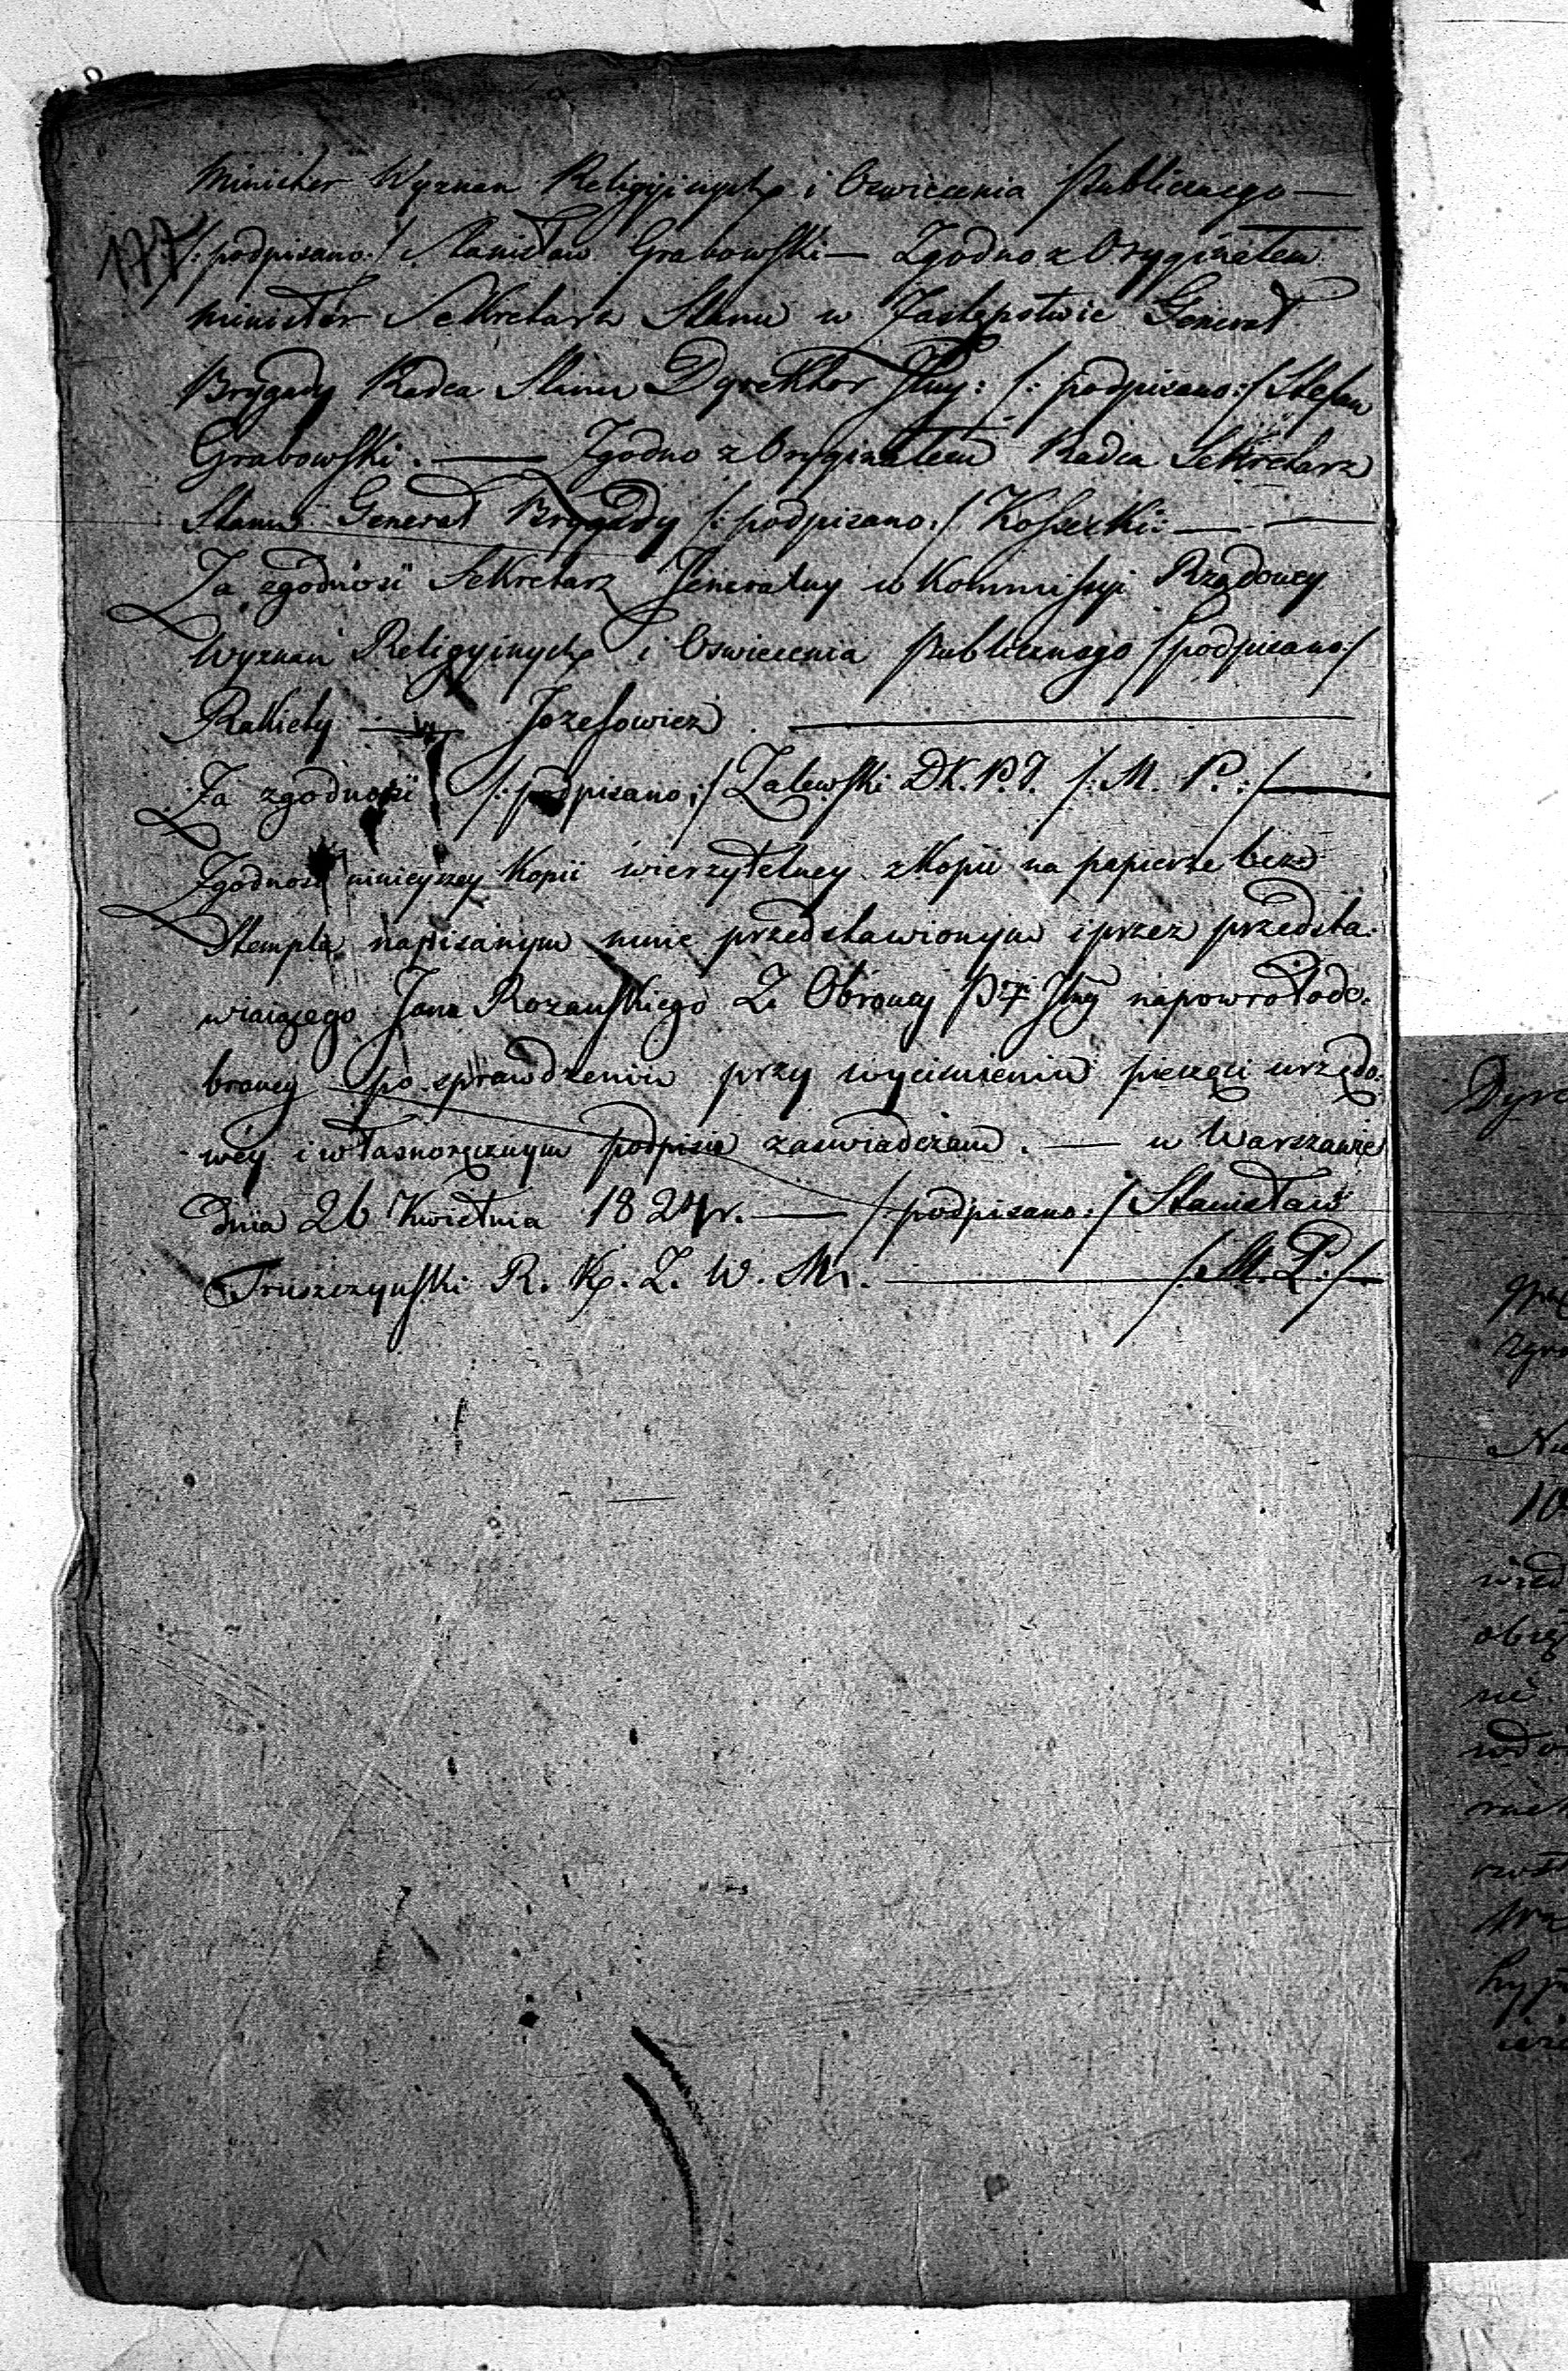 Minister Wyznan Religijnych i Oswiecenia Publicznego —
177 /:podpisano:/ Stanisław Grabowski — Zgodno z Oryginałem
Minister Sekretarz Stanu w Zastępstwie Generał
Brygady Radca Stanu Dyrektor Jlny: /:podpisano:/ Stefan
Grabowski. — Zgodno z Oryginałem Radca Sekretarz
Stanu Generał Brygady /:podpisano:/ Kossecki: —
Za zgodność Sekretarz Jeneralny w Kommissyi Rządowey
Wyznań Religyinych i Oswiecenia Publicznego /podpisano:/
Jozefowicz
Za zgodność /:podpisano:/ Zalewski D.K.P.J. /:M. P.:/
Zgodność ninieyszey Kopii wierzytelney z Kopii na papierze bez
Stempla napisanym mnie przedstawionym i przez przedsta-
wiaiącego Jana Rozanskiego Z. Obroncy napowrot ode-
braney po sprawdzeniu przy wyciśnieniu pieczęci urzędo-
wéy i własnoręcznym podpisie zaswiadczam. — w Warszawie
Dnia 26 Kwietnia 1827 r. — /podpisano:/ Stanisław
Truszczynski R. K. Z. W. M. — /:M. P:/
Dyre
10
wied